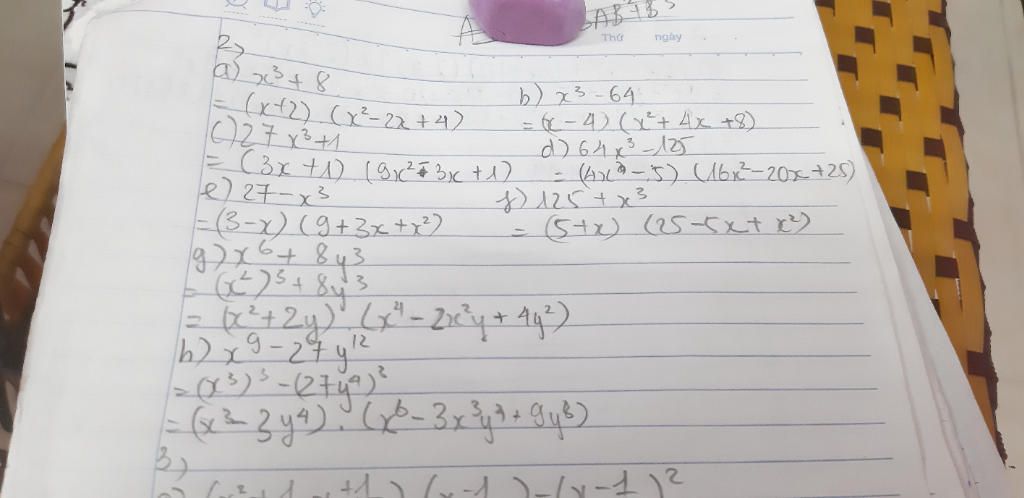 A AB + B³
Thứ ngày
2,
a) x³ + 8
= (x+2) (x² - 2x + 4)
b) x³ - 64
= (x - 4) (x² + 4x + 8)
c) 27x³ + 1
= (3x + 1) (9x² - 3x + 1)
d) 64x³ - 125
= (4x - 5) (16x² - 20x + 25)
e) 27 - x³
= (3 - x) (9 + 3x + x²)
f) 125 + x³
= (5 + x) (25 - 5x + x²)
g) x⁶ + 8y³
= (x²)³ + 8y³
= (x² + 2y) . (x⁴ - 2x²y + 4y²)
h) x⁹ - 27y¹²
= (x³)³ - (27y⁴)³
= (x³ - 3y⁴) . (x⁶ - 3x³y⁴ + 9y⁸)
3,
(x - 1) - (x - 1)²